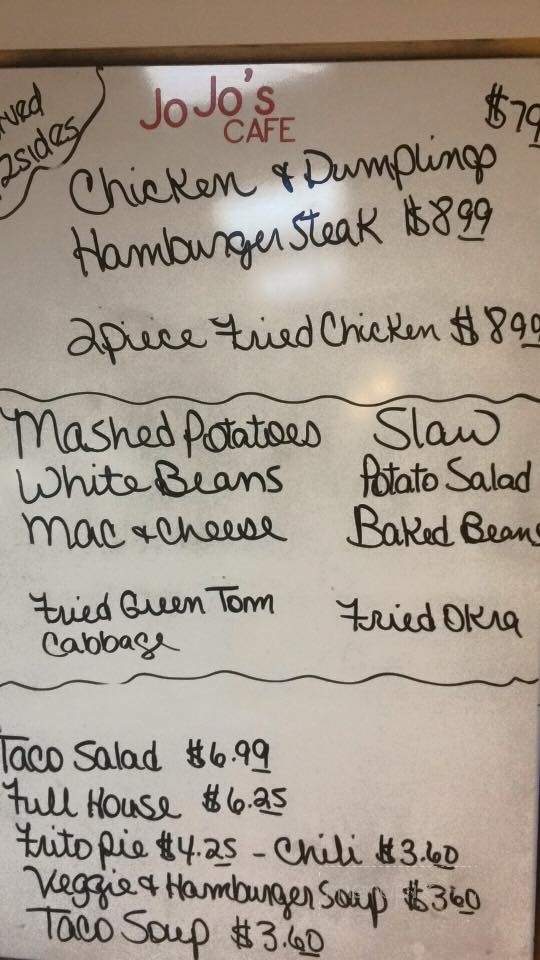 JoJo's
CAFE
2sides
$79
Chicken & Dumplings
Hamburger Steak $8.99
2piece Fried Chicken $8.99
Mashed Potatoes Slaw
White Beans Potato Salad
Mac & Cheese Baked Beans
Fried Green Tom Fried Okra
Cabbage
Taco Salad $6.99
Full House $6.25
Frito pie $4.25 - Chili $3.60
Veggie & Hamburger Soup $3.60
Taco Soup $3.60